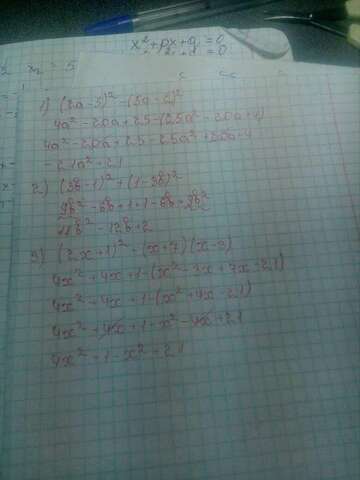 x²+px+q=0
x₂ = 5
1) (2a-5)²-(5a-2)²
4a²-20a+25-(25a²-20a+4)
4a²-20a+25-25a²+20a-4
-21a²+21
2) (3b-1)²+(1-3b)²
9b²-6b+1+1-6b+9b²
18b²-12b+2
3) (2x+1)²-(x+7)(x-3)
4x²+4x+1-(x²-3x+7x-21)
4x²+4x+1-(x²+4x-21)
4x²+4x+1-x²-4x+21
4x²+1-x²+21